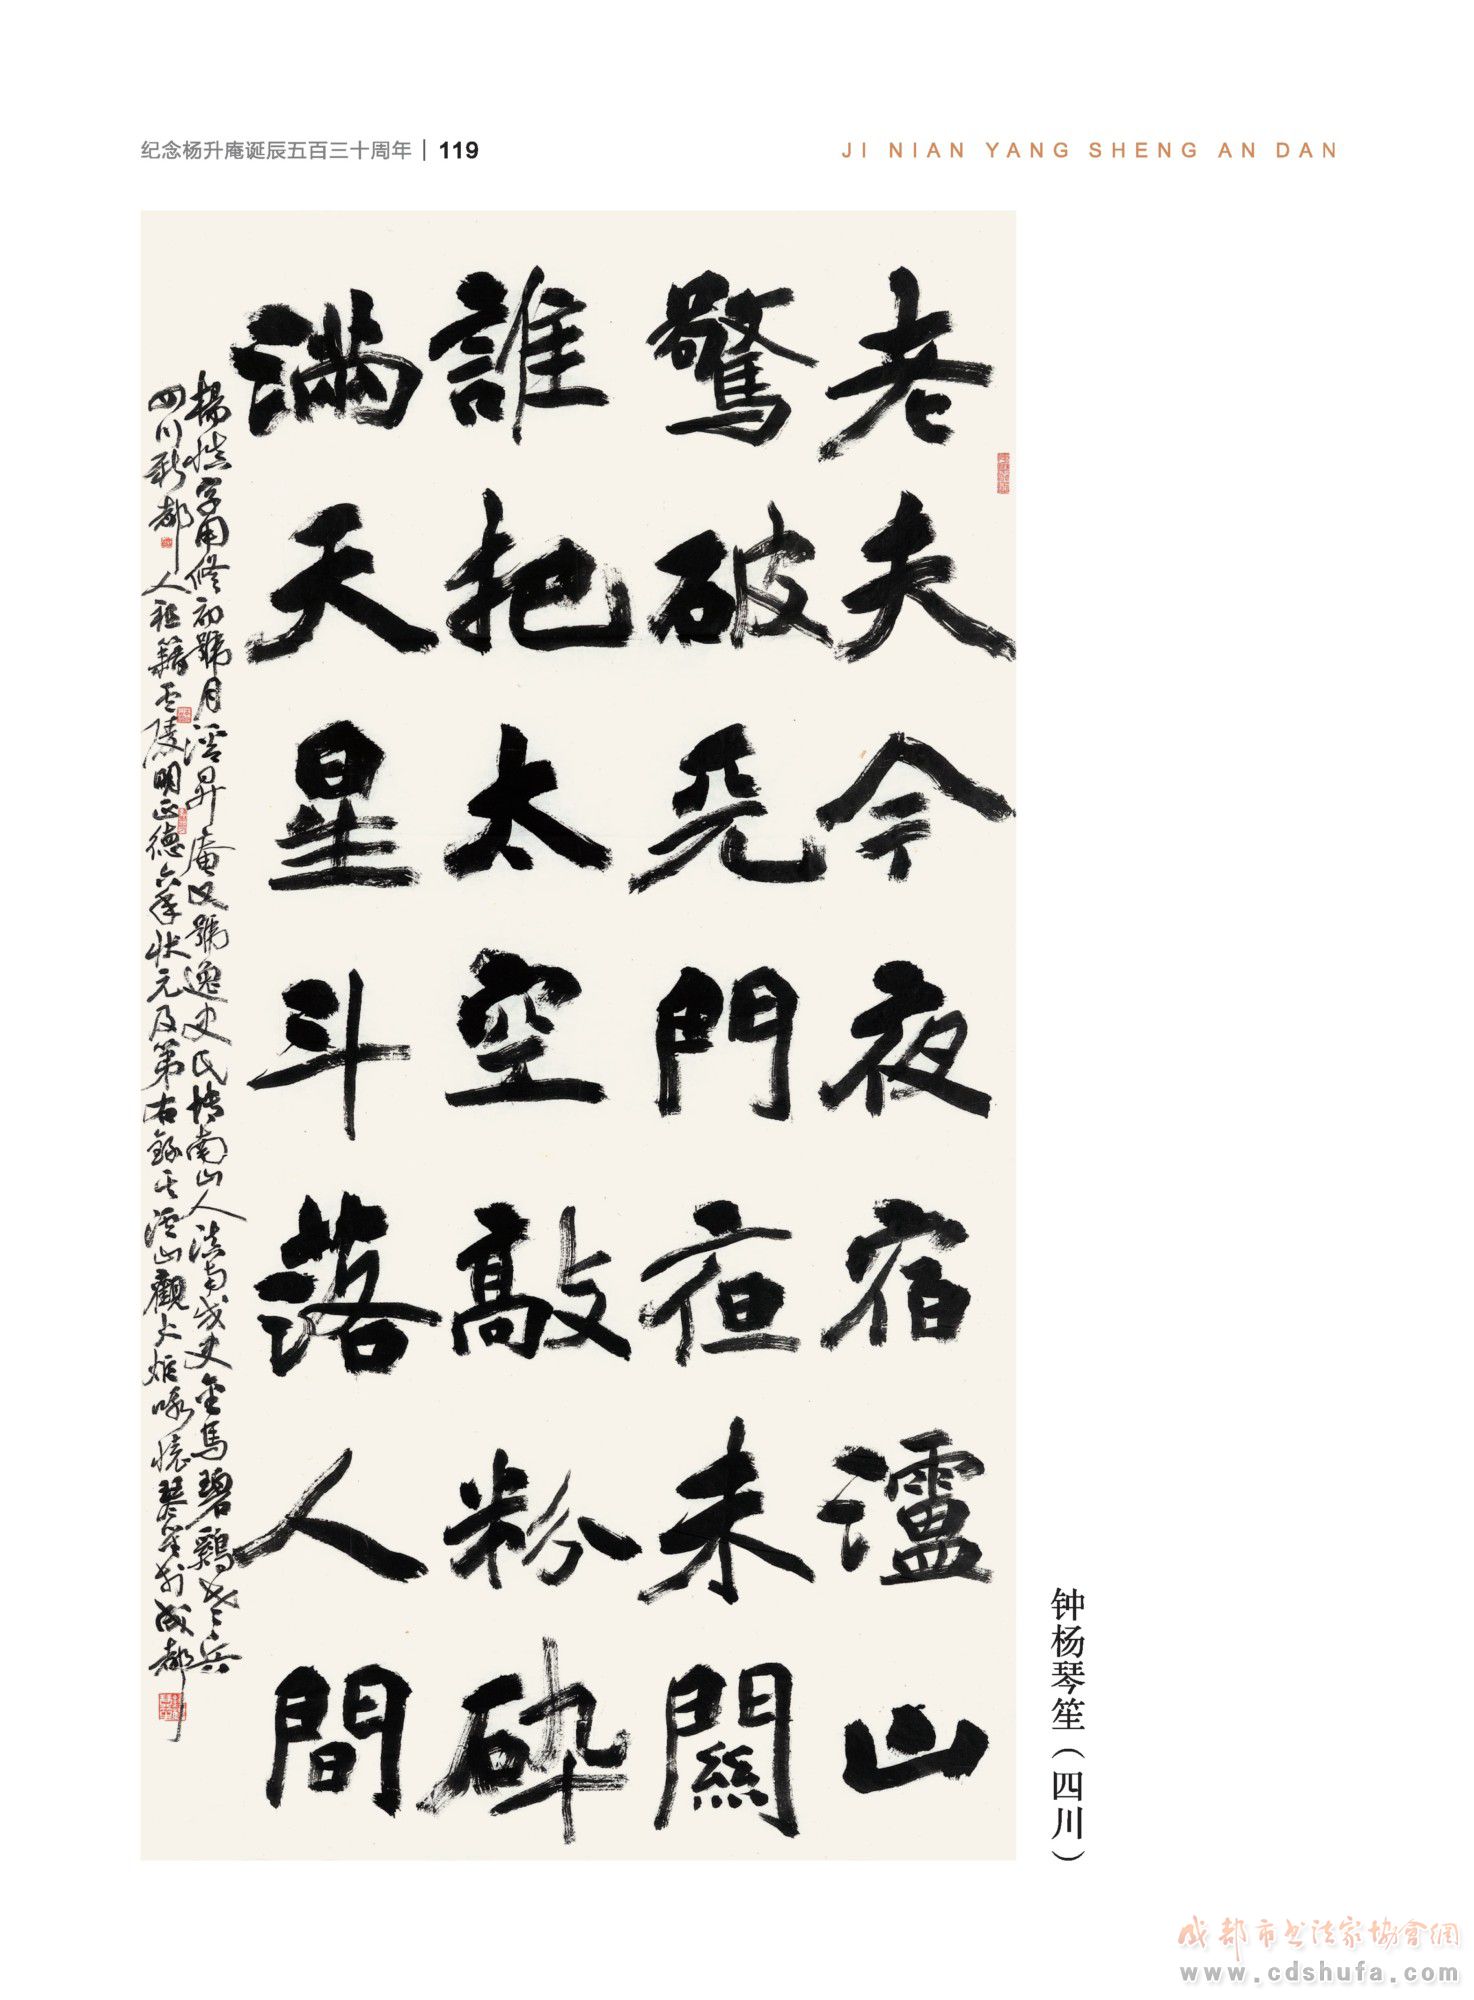 纪念杨升庵诞辰五百三十周年 | 119
JI NIAN YANG SHENG AN DAN
老夫今夜宿瀘山
驚破天門亱未關
誰把太空敲粉碎
滿天星斗落人間
楊慎字用修初號月溪昇庵又號逸史氏博南山人滇南戍史金馬碧雞老兵
四川新都人祖籍廬陵明正德六年状元及第右錄其瀘山觀火炬咏懷琴笙於成都
钟杨琴笙（四川）
成都市书法家協會網
www.cdshufa.com